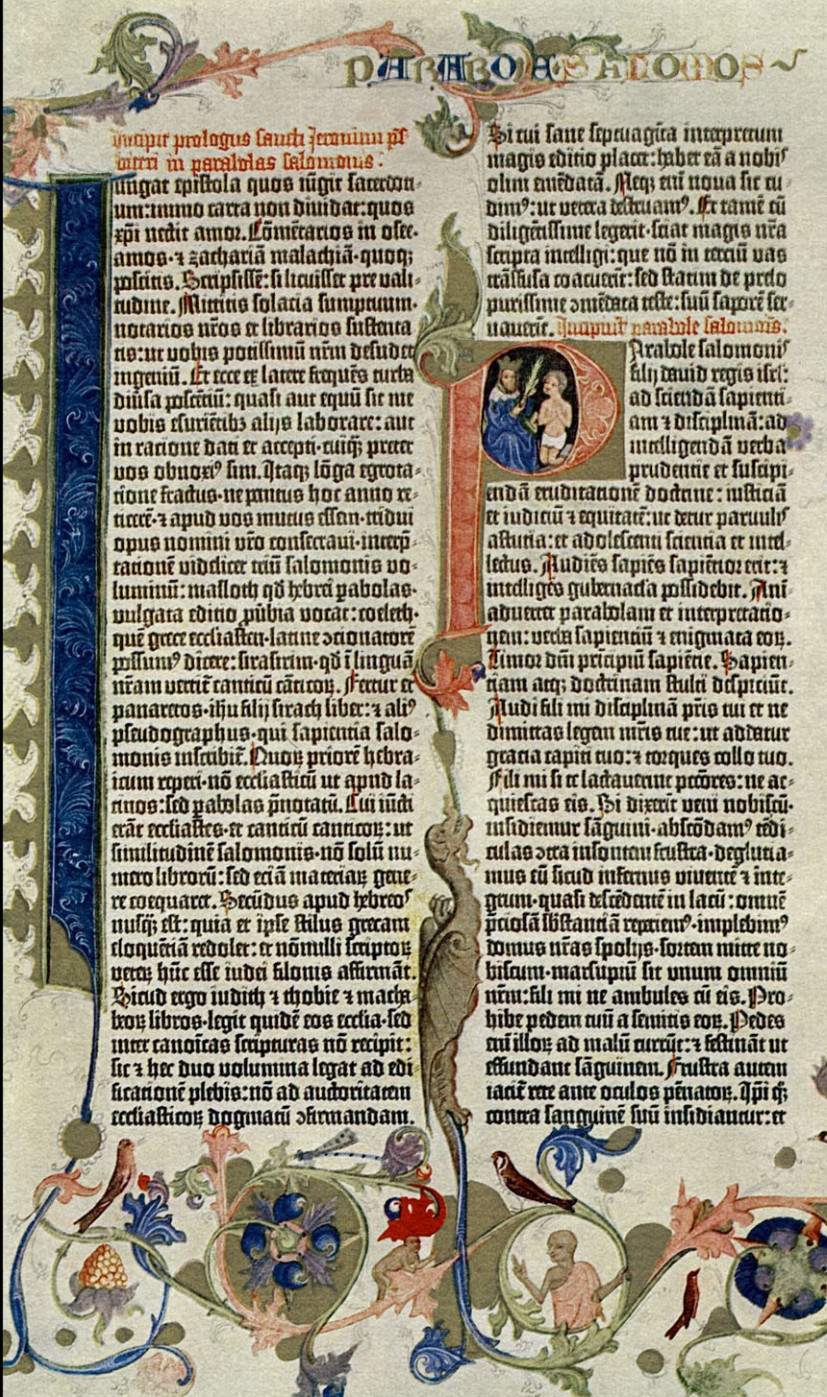 PARABOLE SALOMONIS
Incipit prologus sancti Jeronimi p̄s
biteri in parabolas salomonis:
Iungat epistola quos iūgit sacerdoti-
um: immo carta non diuidat: quos
xp̄i nectit amor. Cōmētarios in osee.
amos. ⁊ zachariā malachiā. quoq;
poscitis. Scripsissē: si licuisset pre vali-
tudine. Mittitis solacia sumptuum.
notarios nr̄os et librarios sustenta-
tis: ut vobis potissimū nr̄m desudet
ingeniū. Et ecce ex latere frequēs turba
diūsa poscētiū: quasi aut equū sit me
vobis esuriētibꝫ alijs laborare: aut
in racione dati et accepti. cuiq; preter
vos obnoxiꝰ sim. Itaq; lōga egrota-
tione fractus. ne penitus hoc anno re-
ticerē. ⁊ apud vos mutus essem. tridui
opus nomini vr̄o consecraui. interp̄-
tationē videlicet triū salomonis vo-
luminū: masloth qd̄ hebrei ꝑabolas.
vulgata editio ꝓūbia vocat: coeleth.
quē grece ecclesiasten. latine ꝯcionatorē
possumꝰ dicere: sirasirim. qd̄ ī linguā
nr̄am vertit̄ canticū cāticoꝝ. Fertur et
panaretos. ih̄u filij sirach liber: ⁊ aliꝰ
pseudographus. qui sapientia salo-
monis inscribit̄. Quoꝝ priorē hebra-
icum reperi. nō ecclesiasticū ut apud la-
tinos: sed ꝑabolas p̄notatū. Cui iūcti
erāt ecclesiastes. et canticū canticoꝝ: ut
similitudinē salomonis. nō solū nu-
mero librorū: sed eciā materiaꝝ gene-
re coequaret. Secūdus apud hebreos
nusq̄ est: quia et ipse stilus grecam
eloquētiā redolet: et nōnulli scriptoꝝ
veteꝝ hūc esse iudei filonis affirmāt.
Sicud ergo iudith ⁊ thobie ⁊ macha-
beoꝝ libros. legit quidē eos ecclesia. sed
inter canoīcas scripturas nō recipit:
sic ⁊ hec duo volumina legat ad edi-
ficationē plebis: nō ad auctoritatem
ecclesiasticoꝝ dogmatū ꝯfirmandam.
Si cui sane septuagīta interpretum
magis editio placet: habet eā a nobis
olim emēdatā. Neq; em̄ noua sic cu-
dimꝰ: ut vetera destruamꝰ. Et tamē cū
diligētissime legerit. sciat magis nr̄a
scripta intelligi: que nō in terciū vas
trāsfusa coacuerīt: sed statim de prelo
purissime ꝯmēdata teste: suū saporē ser-
uauerīt. Incipiūt parabole salomōis.
Parabole salomonis
filij dauid regis isrl̄:
ad sciendā sapienti-
am ⁊ disciplinā: ad
intelligendā verba
prudentie et suscipi-
endā eruditationē doctrine: iusticiā
et iudiciū ⁊ equitatē: ut detur paruulis
astutia: et adolescenti scientia et intel-
lectus. Audiēs sapiēs sapiētior erit: ⁊
intelligēs gubernacła possidebit. Ani-
aduertet parabolam et interpretatio-
nem: verba sapientiū ⁊ enigmata eoꝝ.
Timor dn̄i pricipiū sapiētie. Sapien-
tiam atq; doctrinam stulti despiciūt.
Audi fili mi disciplinā pr̄is tui et ne
dimittas legem mr̄is tue: ut addatur
gratia capiti tuo: ⁊ torques collo tuo.
Fili mi si te lactauerint pctōres: ne ac-
quiescas eis. Si dixerīt veni nobiscū.
insidiemur sāguini. abscōdamꝰ tēdi-
culas ꝯtra insontem frustra. deglucia-
mus eū sicud infernus viuentē ⁊ inte-
grum. quasi descēdentē in lacū: omnē
p̄ciosā sb̄stantiā reperiemꝰ. implebimꝰ
domus nr̄as spolijs. sortem mitte no-
biscum. marsupiū sit unum omniū
nr̄m: fili mi ne ambules cū eis. Pro-
hibe pedem tuū a semitis eoꝝ. Pedes
em̄ illoꝝ ad malū currūt: ⁊ festināt ut
effundant sāguinem. Frustra autem
iacit̄ rete ante oculos pēnatoꝝ. Ipi q̄
contra sanguinē suū insidiantur: et